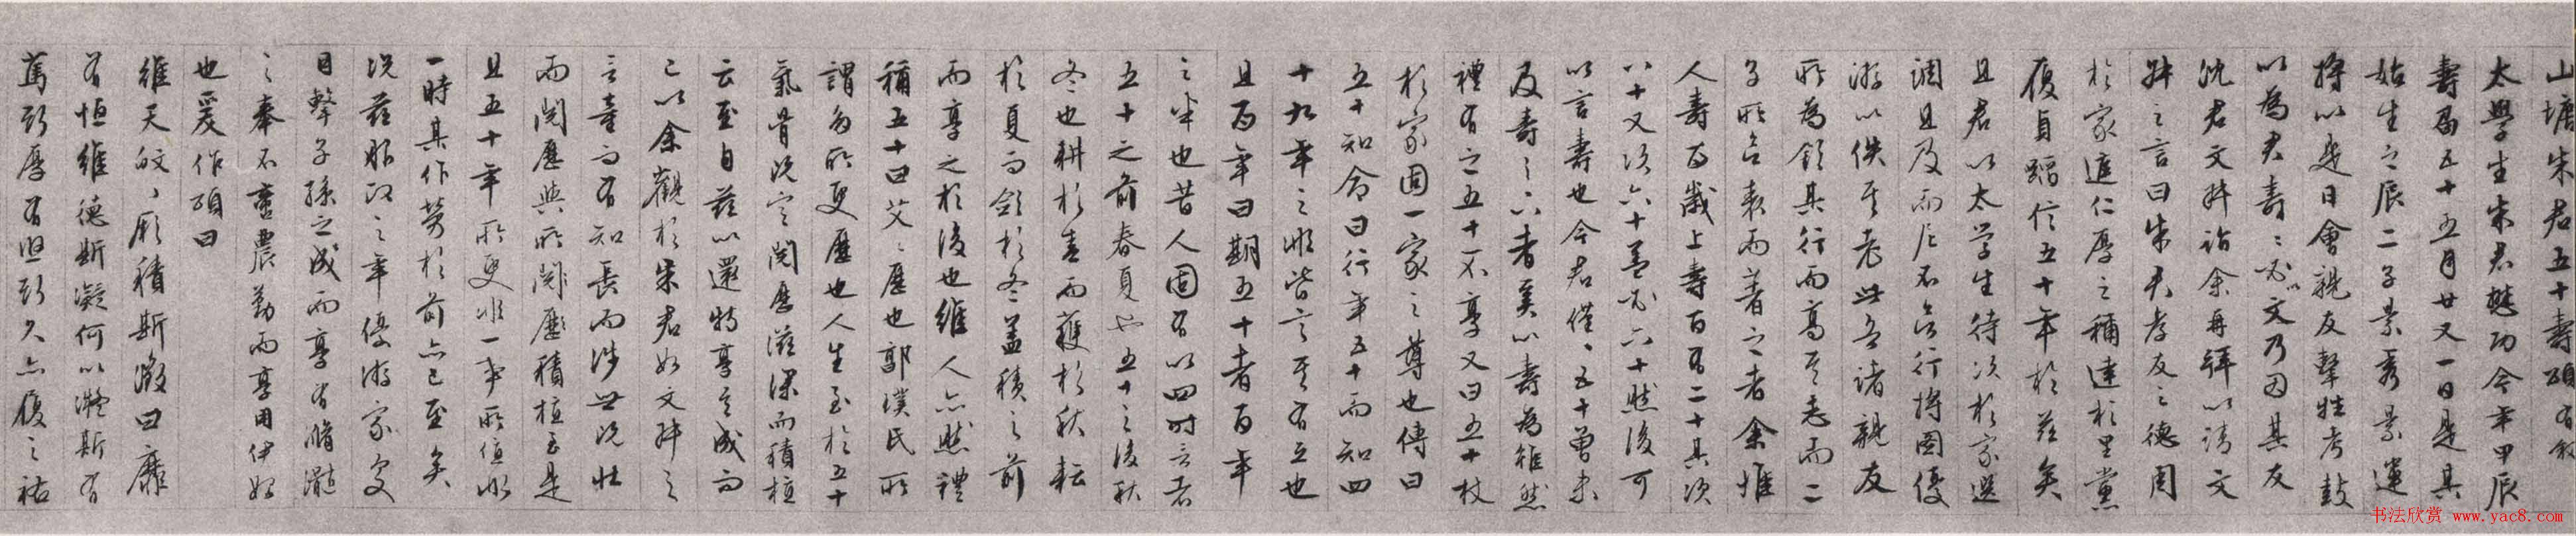 山塘朱君五十壽頌有敘
太學生朱君懋功今年甲辰
壽屆五十五月廿又一日是其
始生之辰二子景秀景運
將以是日會親友擊牲考鼓
以為君壽壽必文乃因其友
沈君文瑞詣余再拜以請文
瑞之言曰朱君孝友之德周
於家進仁厚之稱達於里黨
履貞蹈信五十年於茲矣
且君以太學生待次於家選
調且及而足不治行將圖優
游以佚其老此吾諸親友
所為欲其行而高其志而二
子所以表而著之者余惟
人壽百歲上壽百有二十其次
八十又次六十蓋必六十然後可
以言壽也今君僅僅五十曾未
及壽之六者奚以壽為雖然
禮有之五十不享又曰五十杖
於家固一家之尊也傳曰
五十知命曰行年五十而知四
十九年之非皆言其有立也
且百年曰期五十者百年
之半也昔人固有以四時言者
五十之前春夏也五十之後秋
冬也耕於春而穫於秋耘
於夏而斂於冬蓋積之前
而享之於後也維人亦然禮
稱五十曰艾艾歷也郭璞氏所
謂多所更歷也人生至於五十
氣骨既定閱歷滋深而積植
云至自茲以還特享其成而
已以余觀於朱君如文瑞之
言童而有知長而涉世既壯
而閱歷與所閱歷積植至是
且五十年所更非一事所值非
一時其作勞於前亦已至矣
況茲服政之年優游家食
目擊子孫之成而享有脩瀡
之奉不啻農勤而享用伊始
也爰作頌曰
維天皎皎厥積斯微曰靡
有恒維德斯凝何以凝斯有
篤彌厚有俶彌久亦履之祜
书法欣赏 www.yac8.com